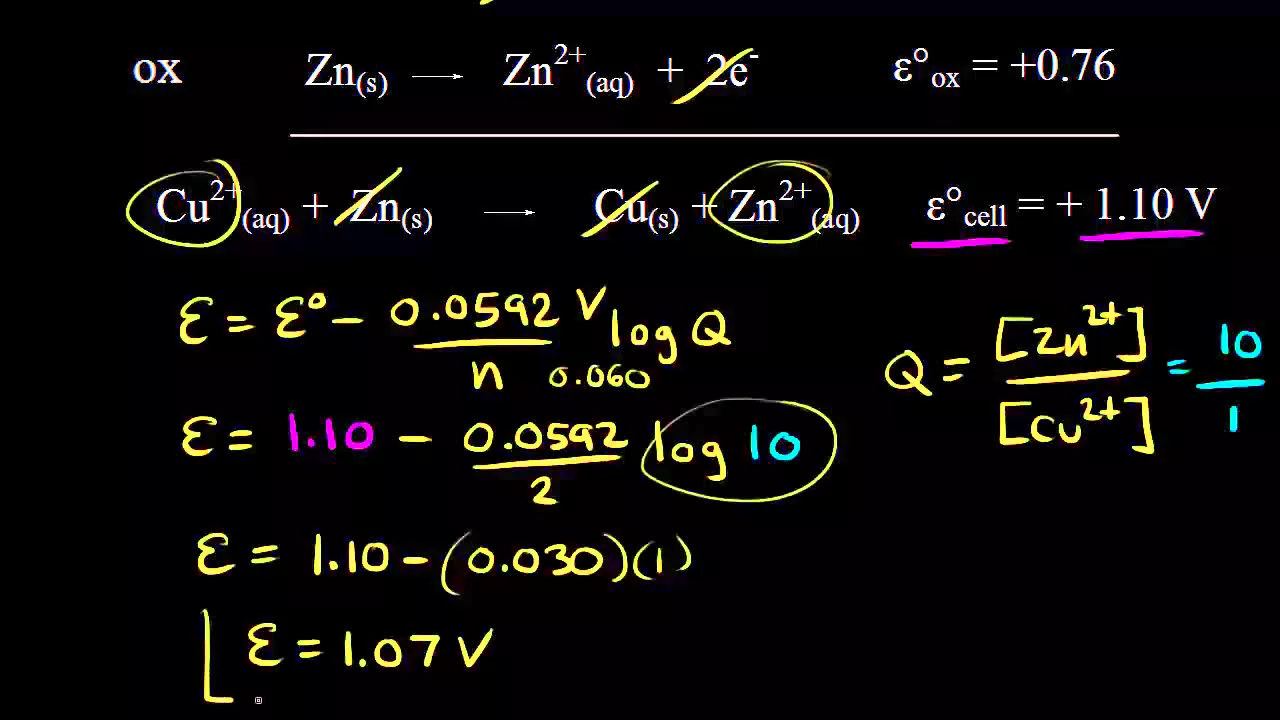 ox Zn(s) → Zn²⁺(aq) + 2e⁻ ε°ox = +0.76
Cu²⁺(aq) + Zn(s) → Cu(s) + Zn²⁺(aq) ε°cell = + 1.10 V
ε = ε° − 0.0592 V / n log Q
0.060
Q = [Zn²⁺] / [Cu²⁺] = 10 / 1
ε = 1.10 − 0.0592 / 2 log 10
ε = 1.10 − (0.030)(1)
ε = 1.07 V